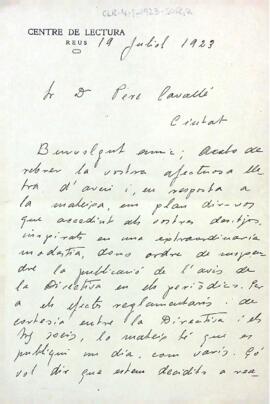 CENTRE DE LECTURA
REUS
19 Juliol 1923
Sr D Pere Cavallé
Ciutat
Benvolgut amic; Acabo de
rebrer la vostra afectuosa lle-
tra d'avui i, en resposta a
la mateixa, em plau dir-vos
que accedint als vostres desitjos,
inspirats en una extraordinaria
modestia, dono ordre de suspen-
dre la publicació de l'avís de
la Directiva en els periòdics. Per
a els efectes reglamentaris i de
cortesia entre la Directiva i els
socis, lo mateix té que es
publiqui un dia, com varis. Çó
vol dir que estem decidits a rea-